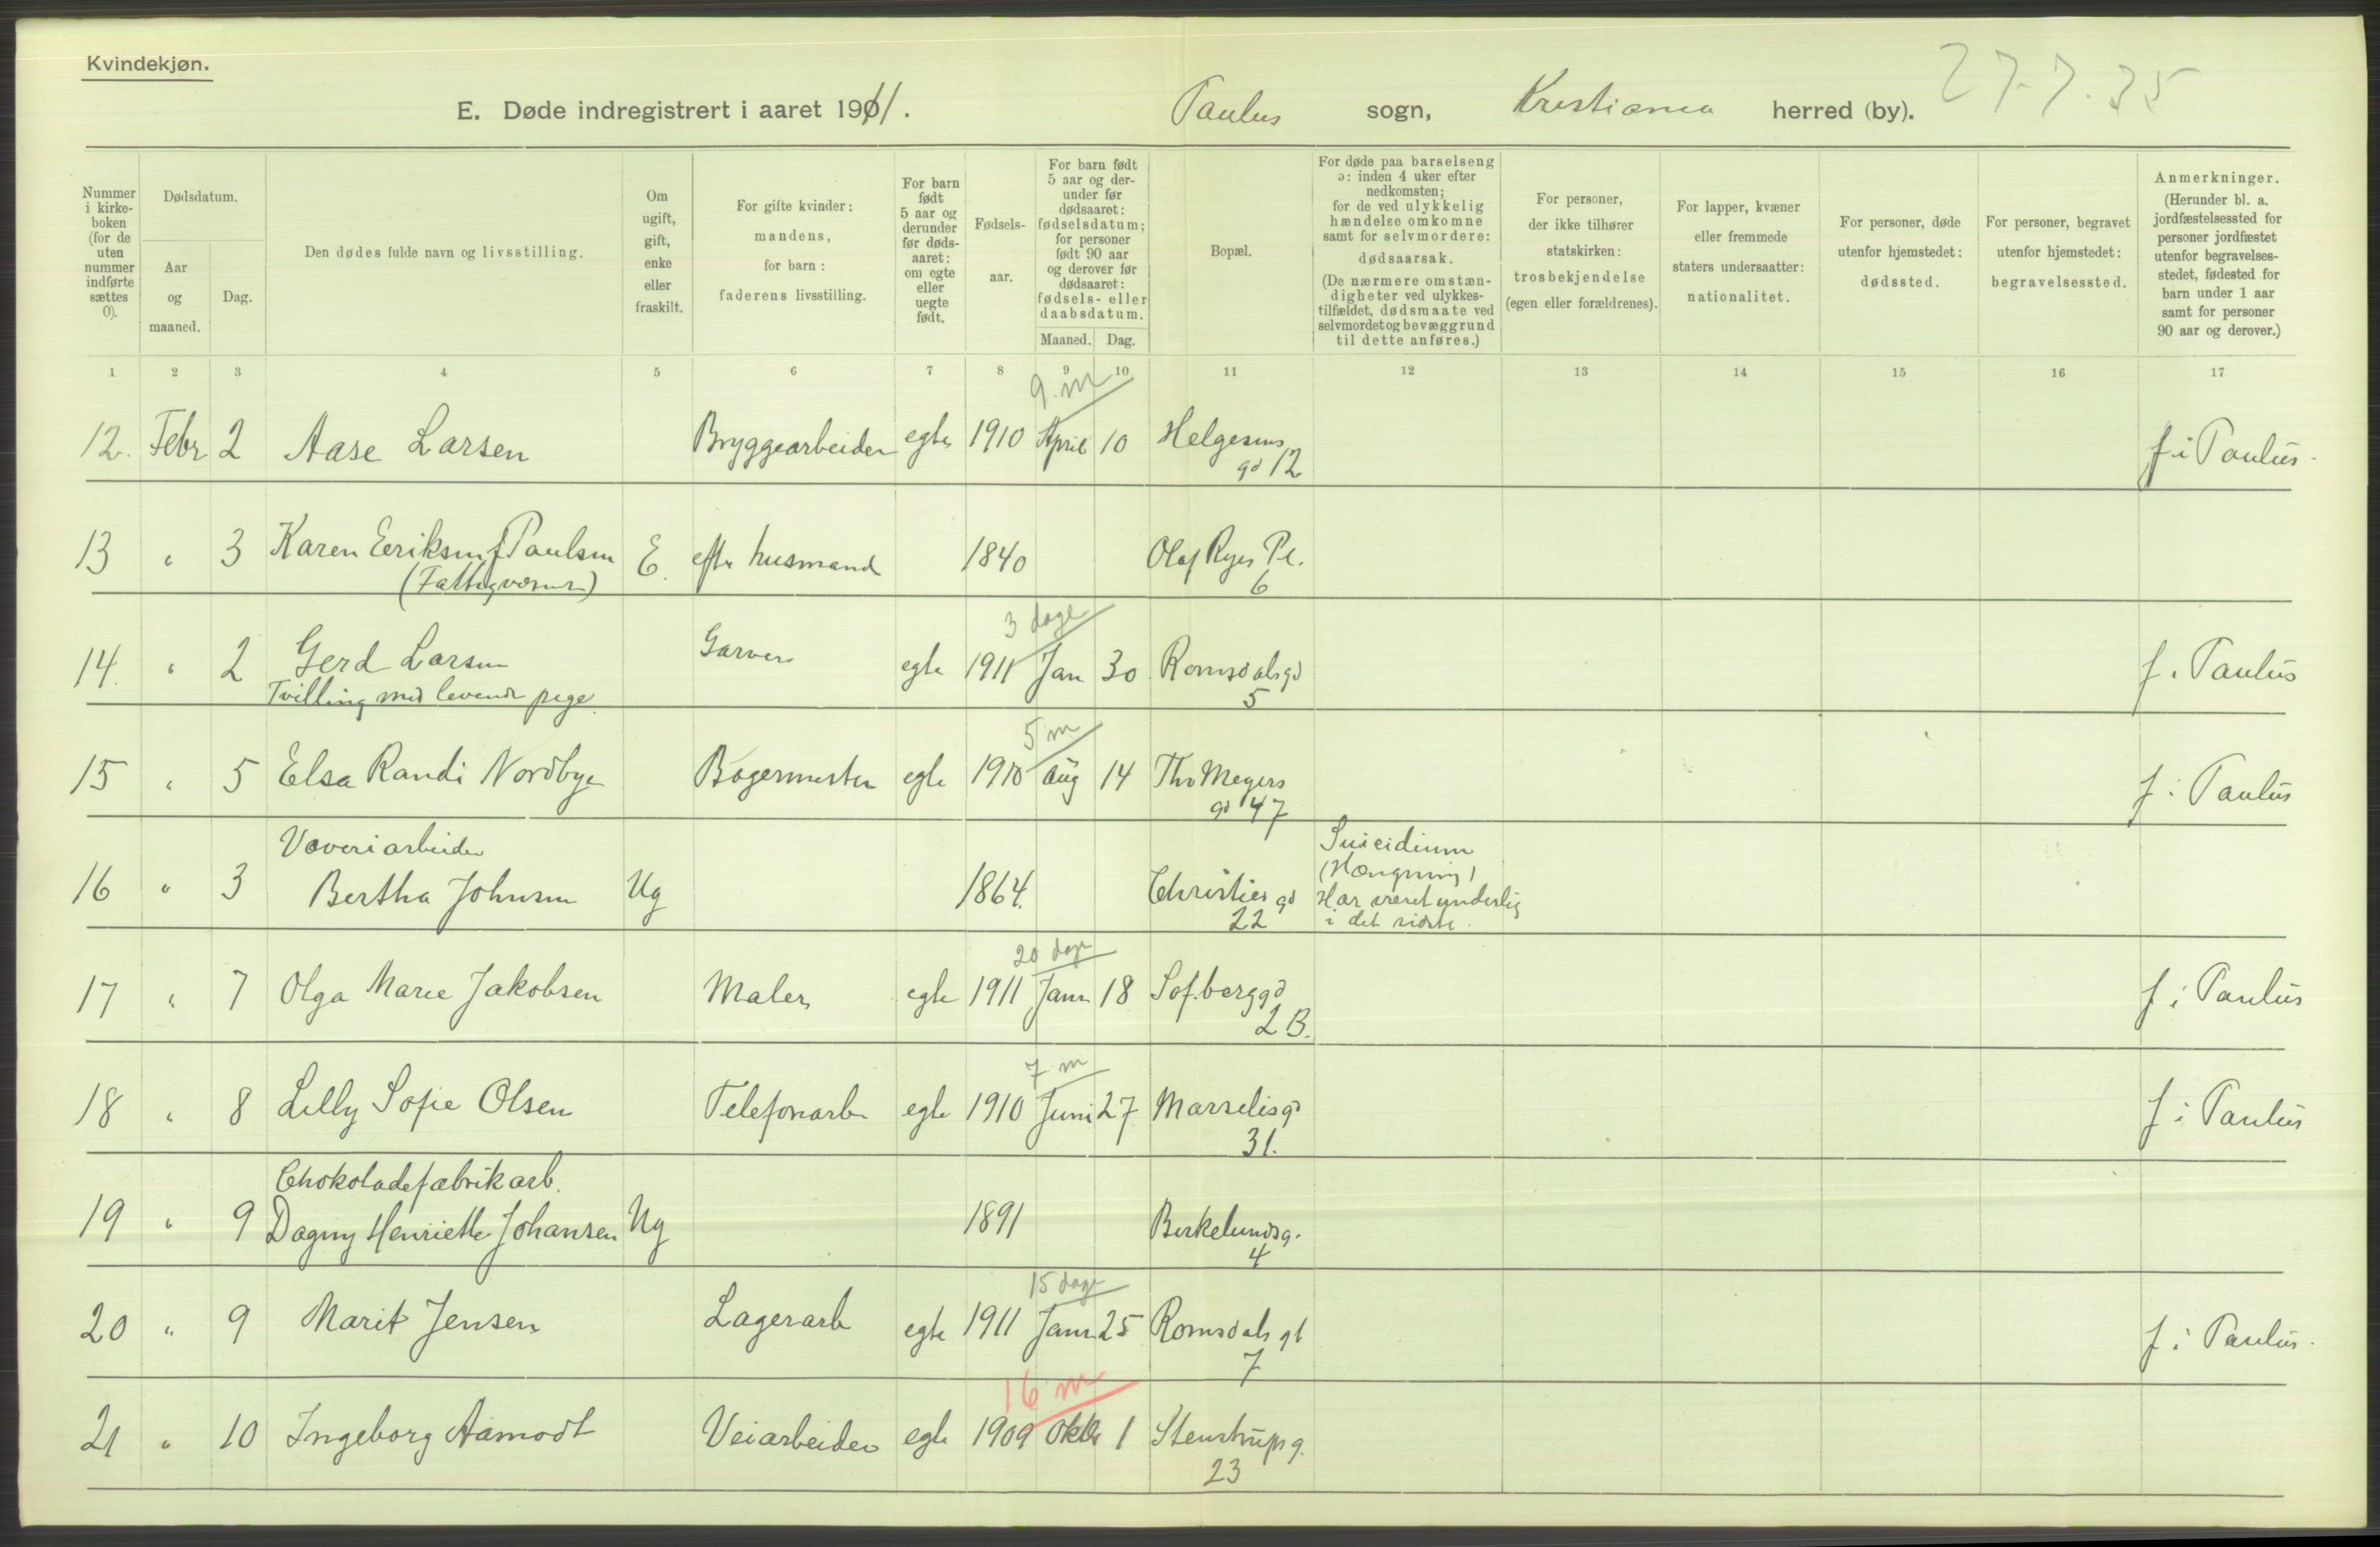 Kvindekjøn.
E. Døde indregistrert i aaret 1911. Paulus sogn, Kristiania herred (by). 27.7.35
Nummer i kirkeboken (for de uten nummer indførte sættes 0).
Dødsdatum.
Aar og maaned.
Dag.
Den dødes fulde navn og livsstilling.
Om ugift, gift, enke eller fraskilt.
For gifte kvinder: mandens, for barn: faderens livsstilling.
For barn født 5 aar og derunder før dødsaaret: om egte eller uegte født.
Fødselsaar.
For barn født 5 aar og derunder før dødsaaret: fødselsdatum; for personer født 90 aar og derover før dødsaaret: fødsels- eller daabsdatum.
Maaned. Dag.
Bopæl.
For døde paa barselseng ɔ: inden 4 uker efter nedkomsten; for de ved ulykkelig hændelse omkomne samt for selvmordere: dødsaarsak. (De nærmere omstændigheter ved ulykkestilfældet, dødsmaate ved selvmordet og bevæggrund til dette anføres.)
For personer, der ikke tilhører statskirken: trosbekjendelse (egen eller forældrenes).
For lapper, kvæner eller fremmede staters undersaatter: nationalitet.
For personer, døde utenfor hjemstedet: dødssted.
For personer, begravet utenfor hjemstedet: begravelsessted.
Anmerkninger. (Herunder bl. a. jordfæstelsessted for personer jordfæstet utenfor begravelsesstedet, fødested for barn under 1 aar samt for personer 90 aar og derover.)
1 2 3 4 5 6 7 8 9 10 11 12 13 14 15 16 17
9 m
12. Febr 2 Aase Larsen Bryggearbeider egte 1910 April 10 Helgesens gd 12 f i Paulus.
13 " 3 Karen Eeriksen f Paulsen E. eftr husmand 1840 Olaf Ryes Pl. 6
(Fattigvæsen)
3 dage
14. " 2 Gerd Larsen Garver egte 1911 Jan 30 Romsdalsgd 5 f. Paulus
Tvilling med levende pige
5 m
15 " 5 Elsa Randi Nordbye Bagermester egte 1910 Aug 14 Thv Meyers gd 47 f i Paulus
Væveriarbeider
16 " 3 Bertha Johnsen Ug 1864. Christies gd 22
Suicidium
(Hængning)
Har været underlig
i det sidste.
20 dage
17 " 7 Olga Marie Jakobsen Maler egte 1911 Janr 18 Sof.berggd 2 B. f i Paulus
7 m
18 " 8 Lilly Sofie Olsen Telefonarb egte 1910 Juni 27 Marselisgd 31. f i Paulus
Chokoladefabrikarb.
19 " 9 Dagny Henriette Johansen Ug 1891 Birkelundsg. 4
15 dage
20 " 9 Marit Jensen Lagerarb egte 1911 Janr 25 Romsdals gt 7 f i Paulus.
16 m
21 " 10 Ingeborg Aamodt Veiarbeider egte 1909 Oktbr 1 Stenstrupsg. 23